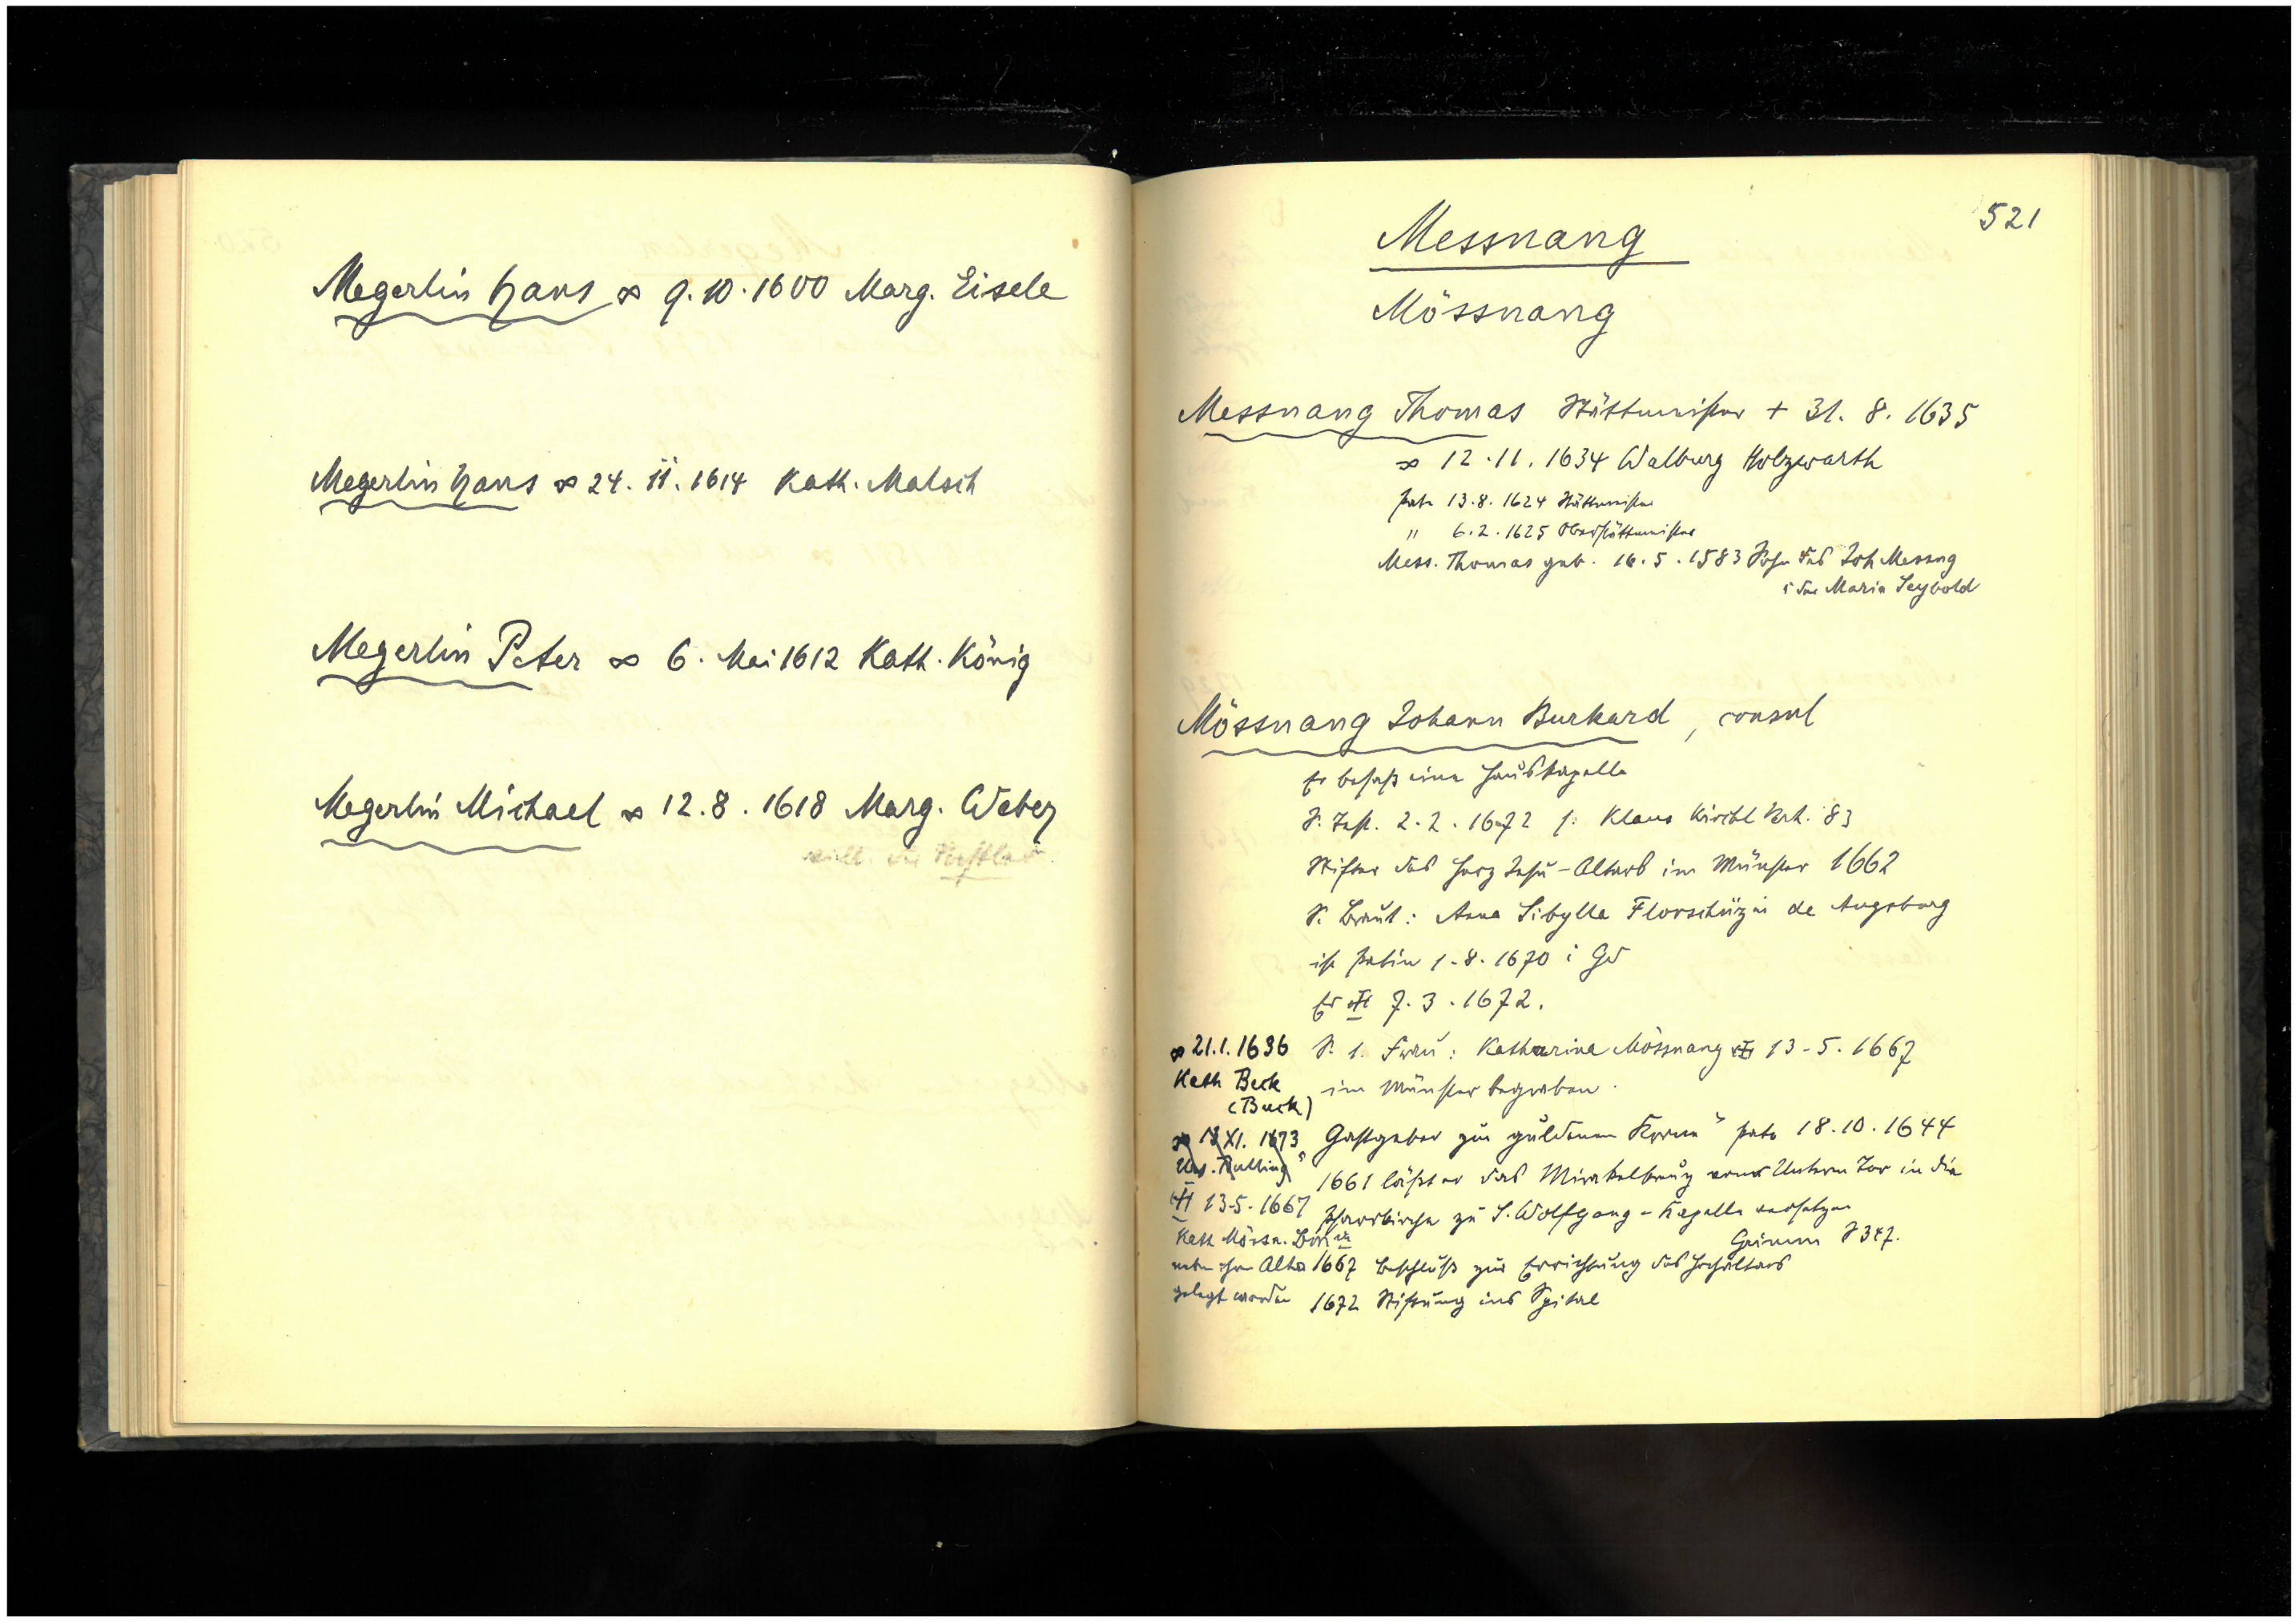 Megerlin Hans ∞ 9.10.1600 Marg. Eisele
Megerlin Hans ∞ 24.11.1614 Kath. Malsch
Megerlin Peter ∞ 6. Mai 1612 Kath. König
Megerlin Michael ∞ 12.8.1618 Marg. Weber
521
Messnang
Mössnang
Messnang Thomas Stättmeister + 31.8.1635
∞ 12.11.1634 Walburg Holzwarth
Pate 13.8.1624 Stättmeister
" 6.2.1625 Oberstättmeister
Mess. Thomas geb. 16.5.1583 Sohn des Joh Messng
i der Maria Seybold
Mössnang Johann Burkard, consul
Er besass eine Hauskapelle
S. Test. 2.2.1672 s. Klaus Kirchl Verh. 83
Stifter des Herz Jesu-Altars im Münster 1662
S. Braut: Anna Sibylla Florschüzin de Augsburg
ist Patin 1.8.1670 i Gd
Er 7.3.1672.
∞ 21.1.1636
Kath Beck
(Buck)
S. 1. Frau: Katharina Mössnang 13-5.1667
im Münster begraben.
∞ 13 XI. 1673
13-5.1667
Kath Mössn.
gelegt worden
"Gastgeber zur guldenen Krone" Pate 18.10.1644
1661 lässt er das Mirakelkreuz vom Unterm Tor in die
Pfarrkirche zu S. Wolfgang-Kapelle versetzen
Grimm S 347.
1667 Beschluss zur Errichtung des Hochaltars
1672 Stiftung ins Spital